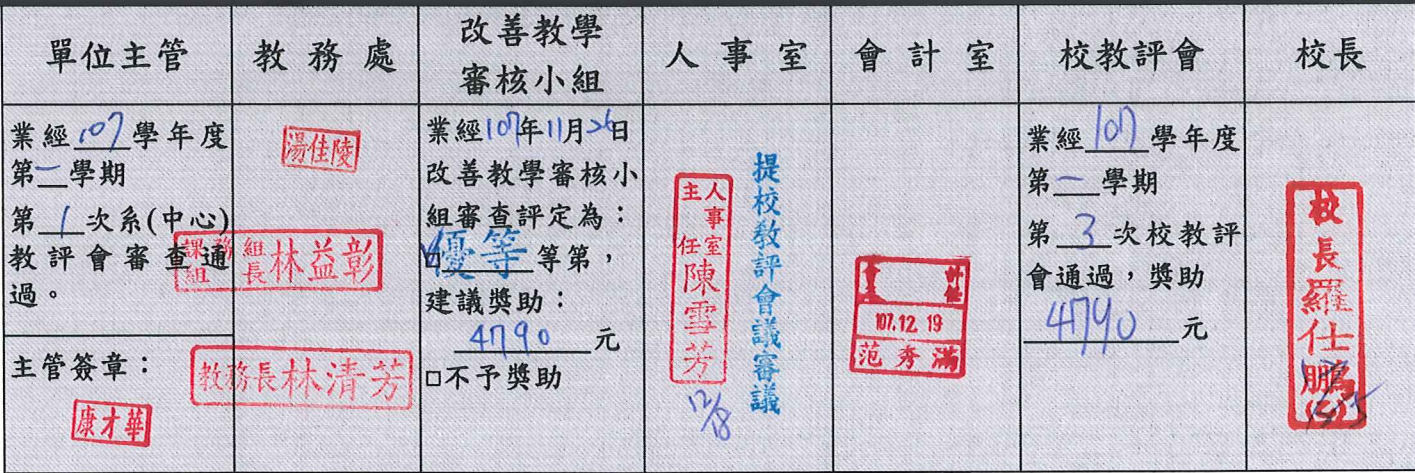 單位主管
教務處
改善教學
審核小組
人事室
會計室
校教評會
校長
業經107學年度
第一學期
第1次系(中心)
教評會審查通
過。
主管簽章：
康才華
湯佳陵
課務組
組長林益彰
教務長林清芳
業經107年11月26日
改善教學審核小
組審查評定為：
優等等第，
建議獎助：
4790元
□不予獎助
人事室
主任陳雪芳
12/18
提校教評會議審議
107.12.19
范秀滿
業經107學年度
第一學期
第3次校教評
會通過，獎助
4790元
校長羅仕鵬